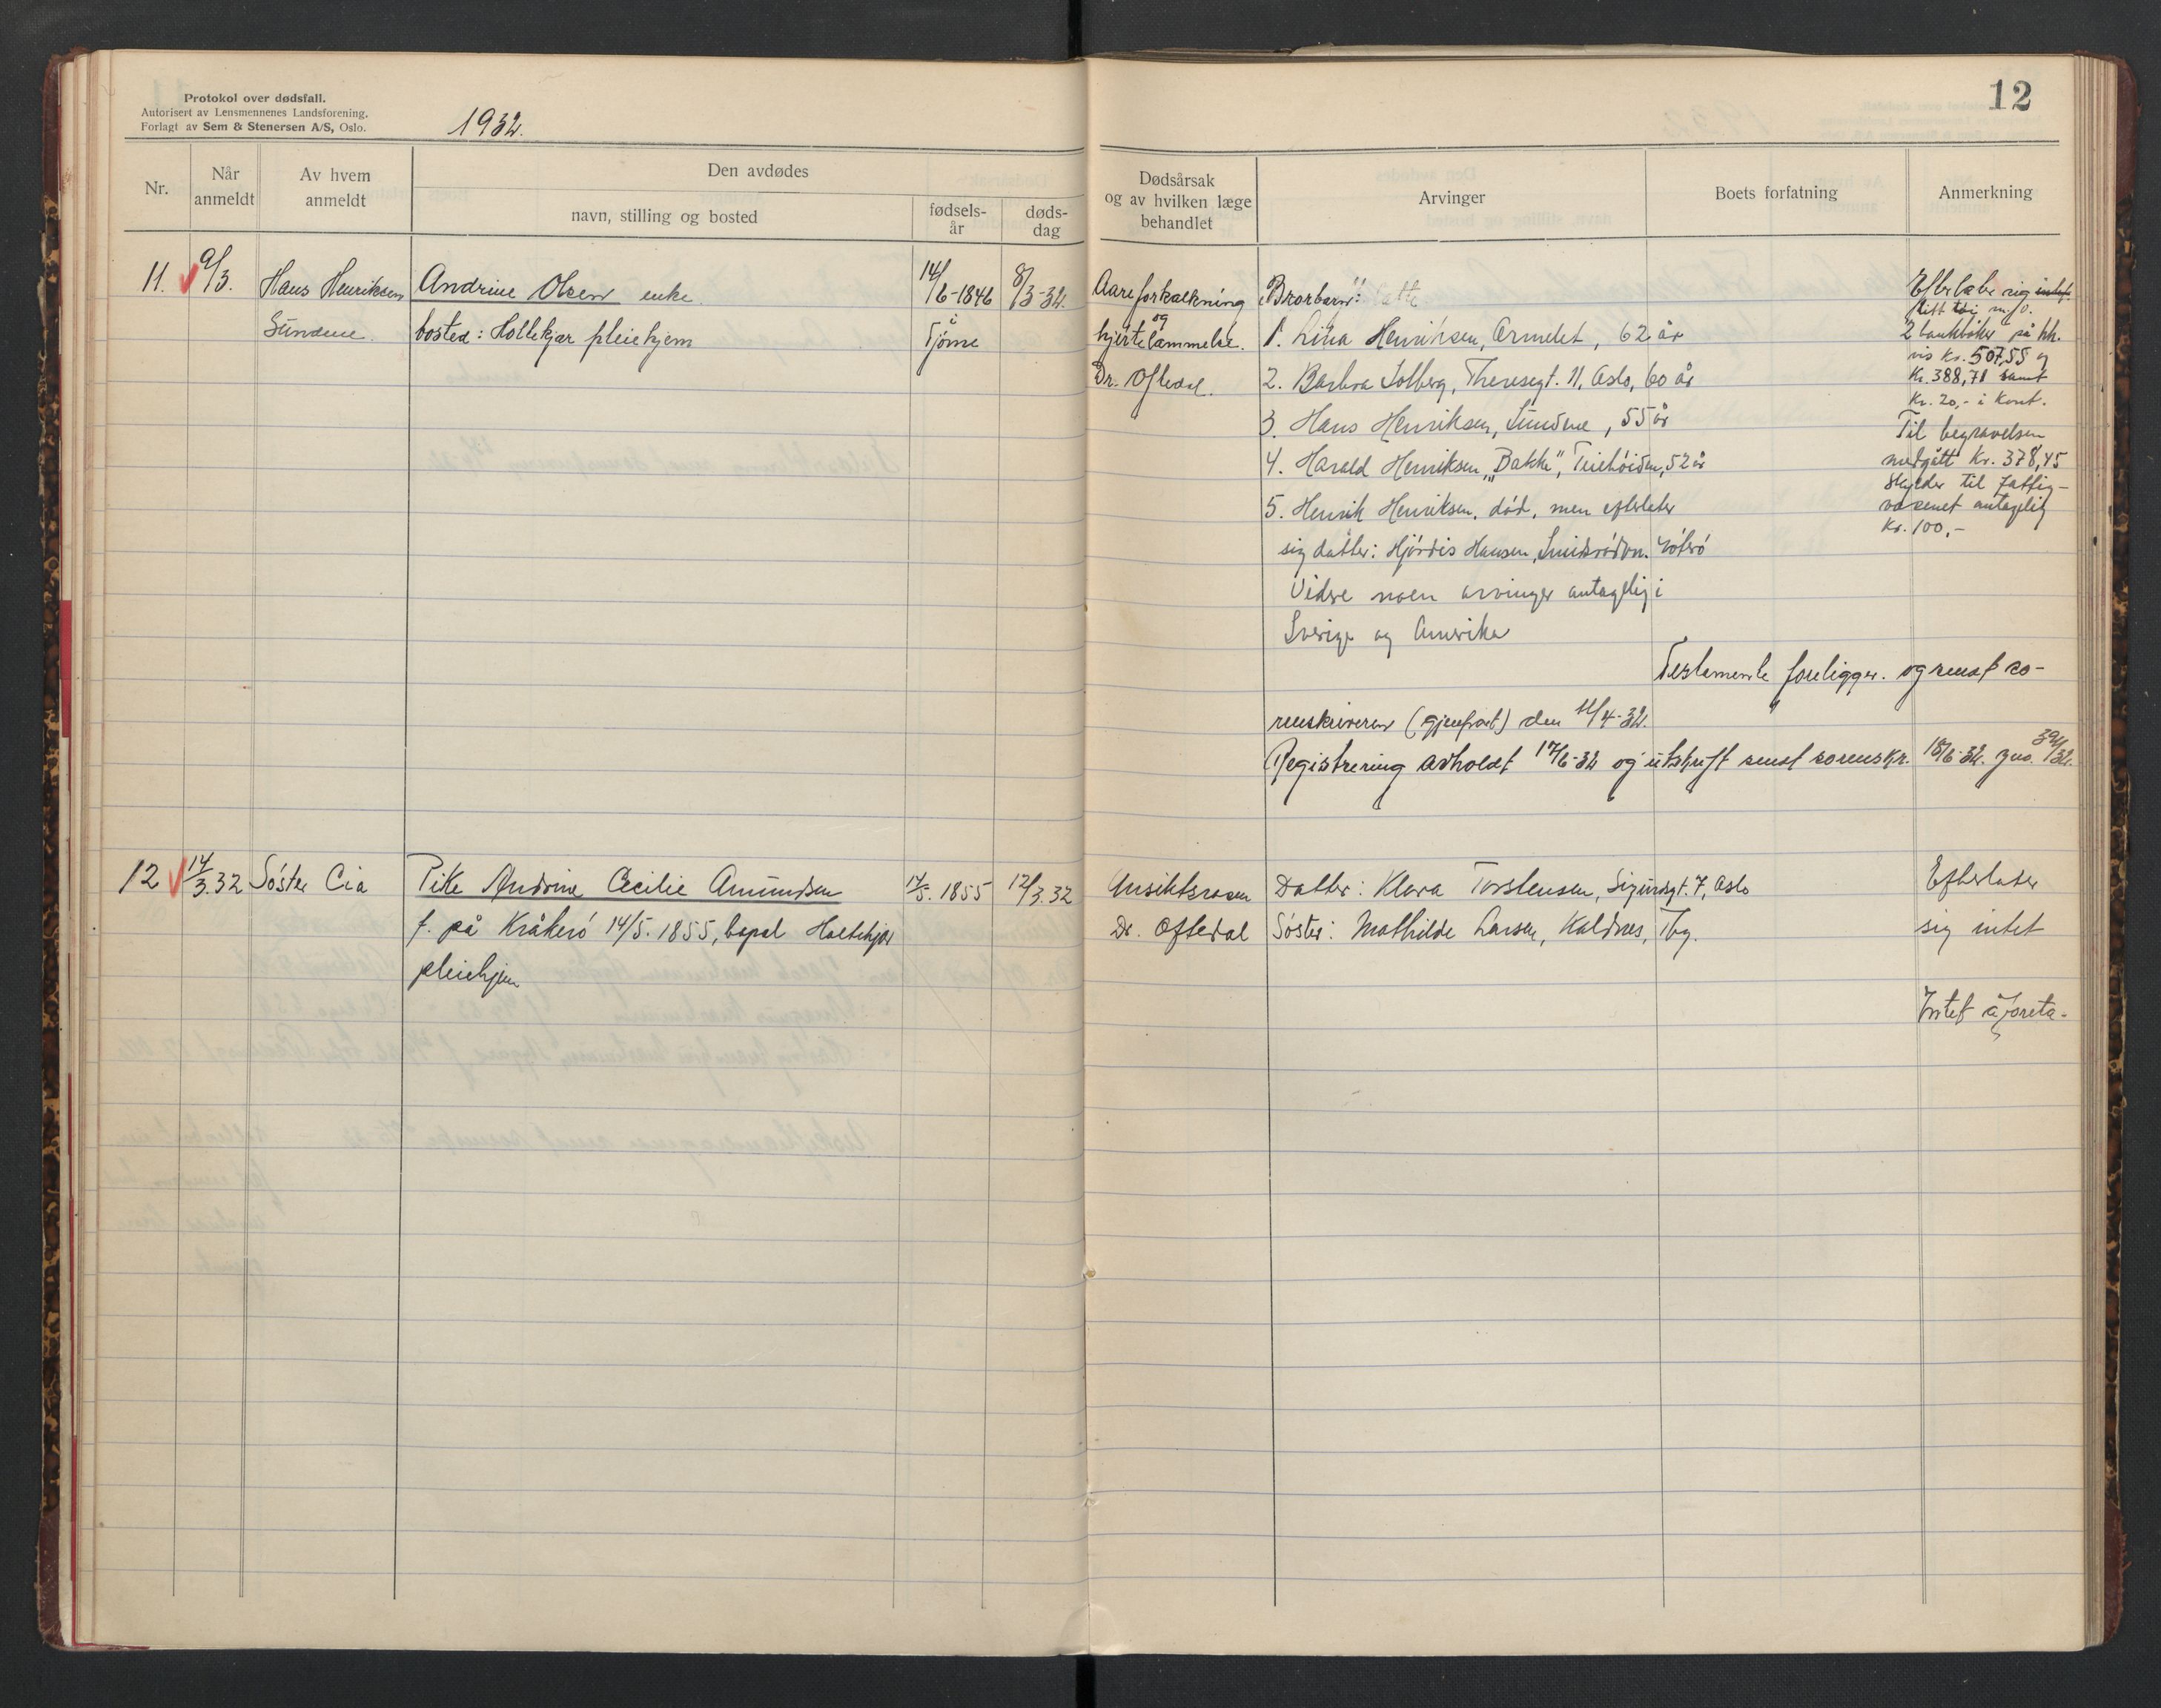 Protokol over dødsfall.
Autorisert av Lensmennenes Landsforening.
Forlagt av Sem & Stenersen A/S, Oslo.
1932.
12
Nr.
Når anmeldt
Av hvem anmeldt
Den avdødes
navn, stilling og bosted
fødsels-år
døds-dag
Dødsårsak og av hvilken læge behandlet
Arvinger
Boets forfatning
Anmerkning
11. 9/3. Hans Henriksen Andrine Olsen enke. 14/6-1846 8/3-32.
Sundene. bosted: Holtekjær pleiehjem i Tjøme
Aareforkalkning
og
hjertelammelse.
Dr. Oftedal.
Brorbarn:
1. Lina Henriksen, Ormelet, 62 år
2. Barbra Solberg, Theresegt. 11, Oslo, 60 år
3. Hans Henriksen, Sundene, 55 år
4. Harald Henriksen, "Bakke", Teiehöiden, 52 år
5. Henrik Henriksen, död, men efterlater
sig datter: Hjördis Hansen, Nöterö
Videre noen arvinger antagelig i
Sverige og Amerika
Efterlater sig intet.
litt töi m.fl.
2 bankböker på hh.
vis kr. 507,55 og
kr. 388,71 samt
kr. 20,- i kont.
Til begravelsen
medgått kr. 378,45
skylder til fattig-
vesenet antagelig
kr. 100,-
Testamente foreligger. og sendt so-
renskriveren (gjenpart) den 11/4-32.
Registrering avholdt 17/6-32 og utskrift sendt sorenskr. 18/6-32. jno. 394/32.
12 14/3.32 Söster Cia Pike Andrine Cecilie Amundsen 14/5. 1855 12/3.32
f. på Kråkerö 14/5. 1855, bopel Holtekjær
pleiehjem
Ansiktsrosen
Dr. Oftedal
Datter: Klara Torstensen, Sigurdsgt. 7, Oslo
Söster: Mathilde Larsen, Kaldnes, Tbg.
Efterlater
sig intet
Intet å foreta.